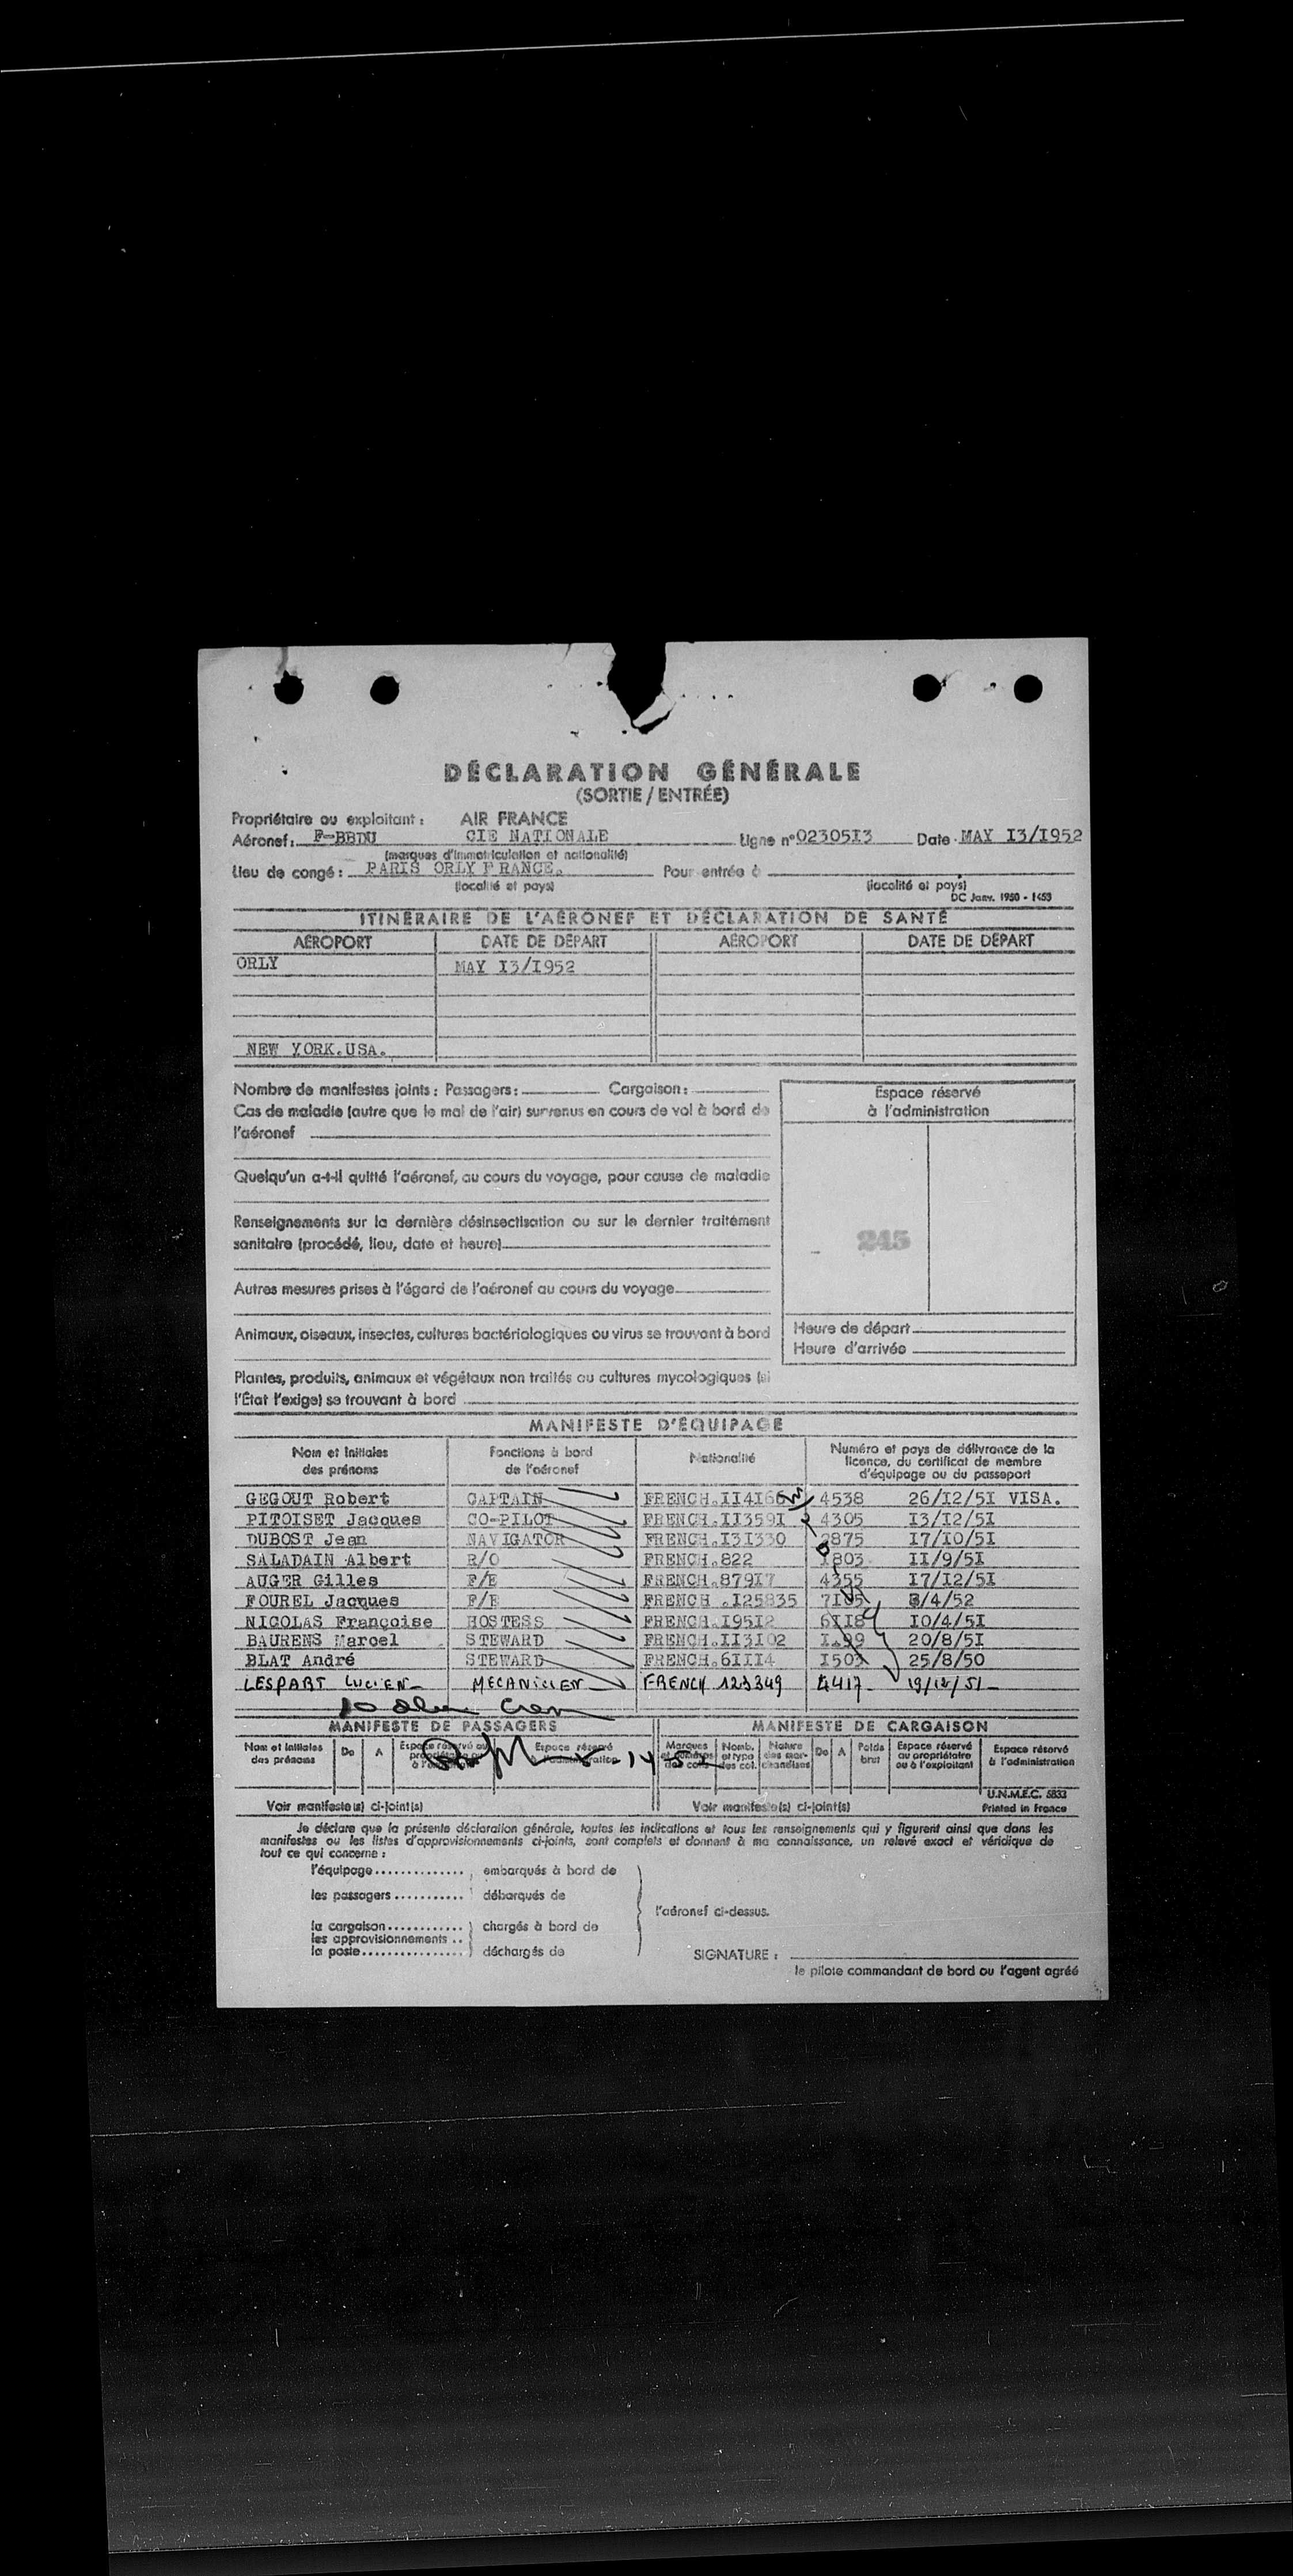 DÉCLARATION GÉNÉRALE
(SORTIE / ENTRÉE)
Propriétaire ou exploitant : AIR FRANCE
Aéronef : F-BBDU CIE NATIONALE Ligne n° 0230513 Date MAY I3/I952
(marques d'immatriculation et nationalité)
Lieu de congé : PARIS ORLY FRANCE. Pour entrée à
(localité et pays) (localité et pays)
DC Janv. 1950 - 1453
ITINÉRAIRE DE L'AÉRONEF ET DÉCLARATION DE SANTÉ
AÉROPORT DATE DE DÉPART AÉROPORT DATE DE DÉPART
ORLY MAY I3/I952
NEW YORK.USA.
Nombre de manifestes joints : Passagers : Cargaison :
Espace réservé
à l'administration
Cas de maladie (autre que le mal de l'air) survenus en cours de vol à bord de
l'aéronef
Quelqu'un a-t-il quitté l'aéronef, au cours du voyage, pour cause de maladie
Renseignements sur la dernière désinsectisation ou sur le dernier traitement
sanitaire (procédé, lieu, date et heure)
245
Autres mesures prises à l'égard de l'aéronef au cours du voyage
Animaux, oiseaux, insectes, cultures bactériologiques ou virus se trouvant à bord
Heure de départ
Heure d'arrivée
Plantes, produits, animaux et végétaux non traités ou cultures mycologiques (si
l'État l'exige) se trouvant à bord
MANIFESTE D'ÉQUIPAGE
Nom et initiales des prénoms Fonctions à bord de l'aéronef Nationalité Numéro et pays de délivrance de la licence, du certificat de membre d'équipage ou du passeport
GEGOUT Robert CAPTAIN FRENCH.II4I66 4538 26/I2/5I VISA.
PITOISET Jacques CO-PILOT FRENCH.II359I 4305 I3/I2/5I
DUBOST Jean NAVIGATOR FRENCH.I3I330 2875 I7/I0/5I
SALADAIN Albert R/O FRENCH.822 I803 II/9/5I
AUGER Gilles F/E FRENCH.879I7 4355 I7/I2/5I
FOUREL Jacques F/E FRENCH .I25835 7I85 3/4/52
NICOLAS Françoise HOSTESS FRENCH.I95I2 6II8 I0/4/5I
BAURENS Marcel STEWARD FRENCH.II3I02 20/8/5I
BLAT André STEWARD FRENCH.6III4 I503 25/8/50
LESPART LUCIEN MECANICIEN FRENCH 123349 4417 19/12/51
10 alien Crew
MANIFESTE DE PASSAGERS MANIFESTE DE CARGAISON
Nom et initiales des prénoms De A Espace réservé au propriétaire ou à l'exploitant Espace réservé à l'administration Marques et numéros des col. Nomb. et type des col. Nature des marchandises De A Poids brut Espace réservé au propriétaire ou à l'exploitant Espace réservé à l'administration
U.N.M.E.C. 5833
Voir manifeste(s) ci-joint(s) Voir manifeste(s) ci-joint(s) Printed in France
Je déclare que la présente déclaration générale, toutes les indications et tous les renseignements qui y figurent ainsi que dans les
manifestes ou les listes d'approvisionnements ci-joints, sont complets et donnent à ma connaissance, un relevé exact et véridique de
tout ce qui concerne :
l'équipage.............. embarqués à bord de
les passagers........... débarqués de
l'aéronef ci-dessus.
la cargaison............ chargés à bord de
les approvisionnements ..
la poste................ déchargés de
SIGNATURE :
le pilote commandant de bord ou l'agent agréé